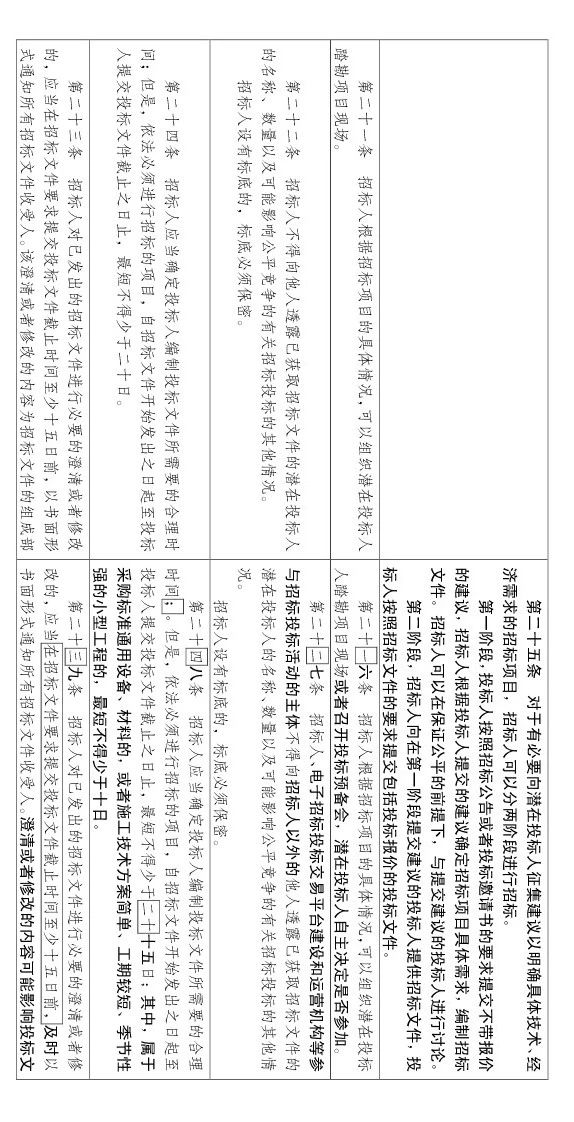 第二十五条　对于有必要向潜在投标人征集建议以明确具体技术、经
济需求的招标项目，招标人可以分两阶段进行招标。
第一阶段，投标人按照招标公告或者投标邀请书的要求提交不带报价
的建议，招标人根据投标人提交的建议确定招标项目具体需求，编制招标
文件。招标人可以在保证公平的前提下，与提交建议的投标人进行讨论。
第二阶段，招标人向在第一阶段提交建议的投标人提供招标文件，投
标人按照招标文件的要求提交包括投标报价的投标文件。
第二十一条　招标人根据招标项目的具体情况，可以组织潜在投标人
踏勘项目现场。
第二十一六条　招标人根据招标项目的具体情况，可以组织潜在投标
人踏勘项目现场或者召开投标预备会，潜在投标人自主决定是否参加。
第二十二条　招标人不得向他人透露已获取招标文件的潜在投标人
的名称、数量以及可能影响公平竞争的有关招标投标的其他情况。
招标人设有标底的，标底必须保密。
第二十二七条　招标人、电子招标投标交易平台建设和运营机构等参
与招标投标活动的主体不得向招标人以外的他人透露已获取招标文件的
潜在投标人的名称、数量以及可能影响公平竞争的有关招标投标的其他情
况。
招标人设有标底的，标底必须保密。
第二十四条　招标人应当确定投标人编制投标文件所需要的合理时
间；但是，依法必须进行招标的项目，自招标文件开始发出之日起至投标
人提交投标文件截止之日止，最短不得少于二十日。
第二十四八条　招标人应当确定投标人编制投标文件所需要的合理
时间；。但是，依法必须进行招标的项目，自招标文件开始发出之日起至
投标人提交投标文件截止之日止，最短不得少于二十十五日；其中，属于
采购标准通用设备、材料的，或者施工技术方案简单、工期较短、季节性
强的小型工程的，最短不得少于十日。
第二十三条　招标人对已发出的招标文件进行必要的澄清或者修改
的，应当在招标文件要求提交投标文件截止时间至少十五日前，以书面形
式通知所有招标文件收受人。该澄清或者修改的内容为招标文件的组成部
第二十三九条　招标人对已发出的招标文件进行必要的澄清或者修
改的，应当在招标文件要求提交投标文件截止时间至少十五日前，及时以
书面形式通知所有招标文件收受人。澄清或者修改的内容可能影响投标文